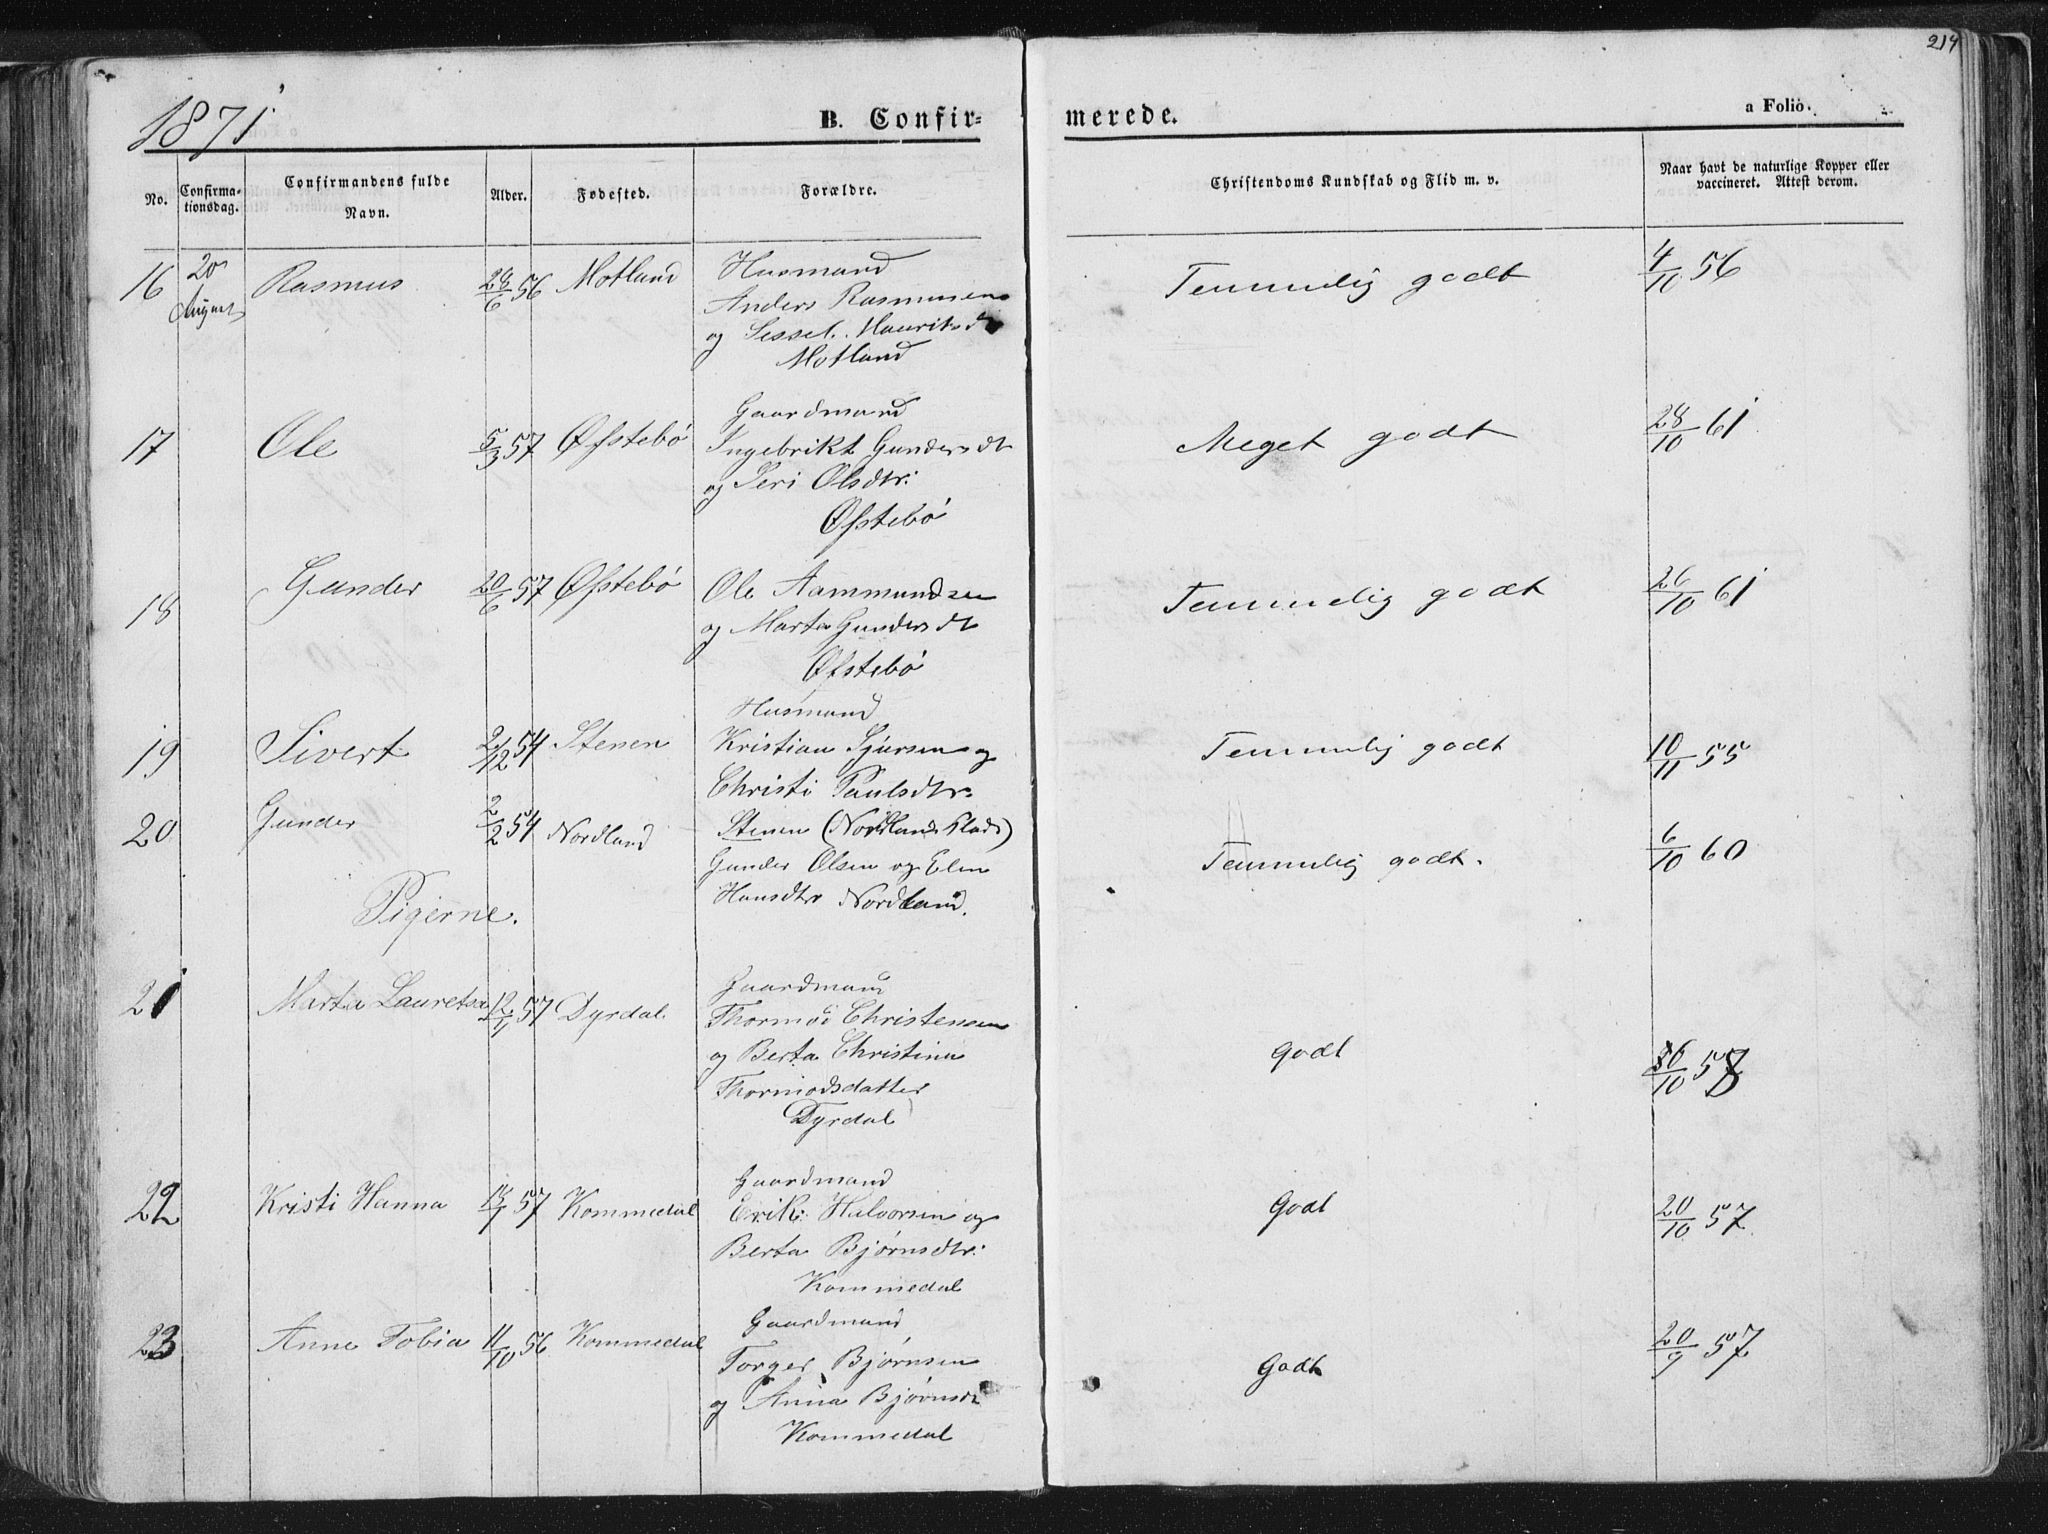 214
1871
B. Confirmerede.
a Folio.
No.
Confirmationsdag.
Confirmandens fulde Navn.
Alder.
Fødested.
Forældre.
Christendoms Kundskab og Flid m. v.
Naar havt de naturlige Kopper eller vaccineret. Attest derom.
16 20 August Rasmus 28/6 56 Motland Husmand Temmelig godt 4/10 56
Anders Rasmussen
og Sissel Mauritsdr
Motland
17 Ole 5/3 57 Øfstebø Gaardmand Meget godt 28/10 61
Ingebrikt Gundersdt
og Seri Olsdtr:
Øfstebø
18 Gunder 20/6 57 Øfstebø Ole Aammundsen Temmelig godt 26/10 61
og Marta Gundersdt
Øfstebø
19 Sivert 2/12 54 Stenen Husmand Temmelig godt 10/11 55
Kristian Sjursen og
Christi Paulsdtr.
Stenen (Nordlands Plads)
20 Gunder 2/2 54 Nordland Gunder Olsen og Elen Temmelig godt. 6/10 60
Hansdtr Nordland.
Pigerne.
21 Marta Lauretsa 12/1 57 Dyrdal Gaardmand Godt 26/10 58
Thormod Christensen
og Berta Christina
Thormodsdatter
Dyrdal
22 Kristi Hanna 18/7 57 Kommedal Gaardmand Godt 20/10 57
Erik Halvorsen og
Berta Bjørnsdtr:
Kommedal
23 Anne Tobia 11/10 56 Kommedal Gaardmand Godt 20/9 57
Torger Bjørnsen
og Anna Bjørnsdt
Kommedal